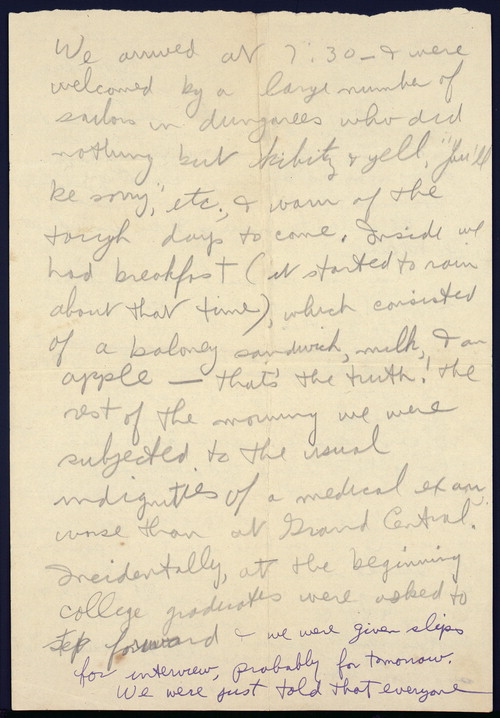 We arrived at 7:30 - & were
welcomed by a large number of
sailors in dungarees who did
nothing but kibitz & yell, "You'll
be sorry," etc., & warn of the
tough days to come. Inside we
had breakfast (it started to rain
about that time), which consisted
of a baloney sandwich, milk, & an
apple — that's the truth! The
rest of the morning we were
subjected to the usual
indignities of a medical exam,
worse than at Grand Central.
Incidentally, at the beginning
college graduates were asked to
step forward & we were given slips
for interview, probably for tomorrow.
We were just told that everyone